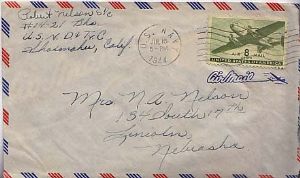 Robert Nelson S/c
U.S.N. D & R C
Shoemaker, Calif.
U.S. NAVY
5-PM
1944
AIR MAIL
8¢
UNITED STATES OF AMERICA
Air Mail
Mrs N.A. Nelson
154 South 17th
Lincoln
Nebraska